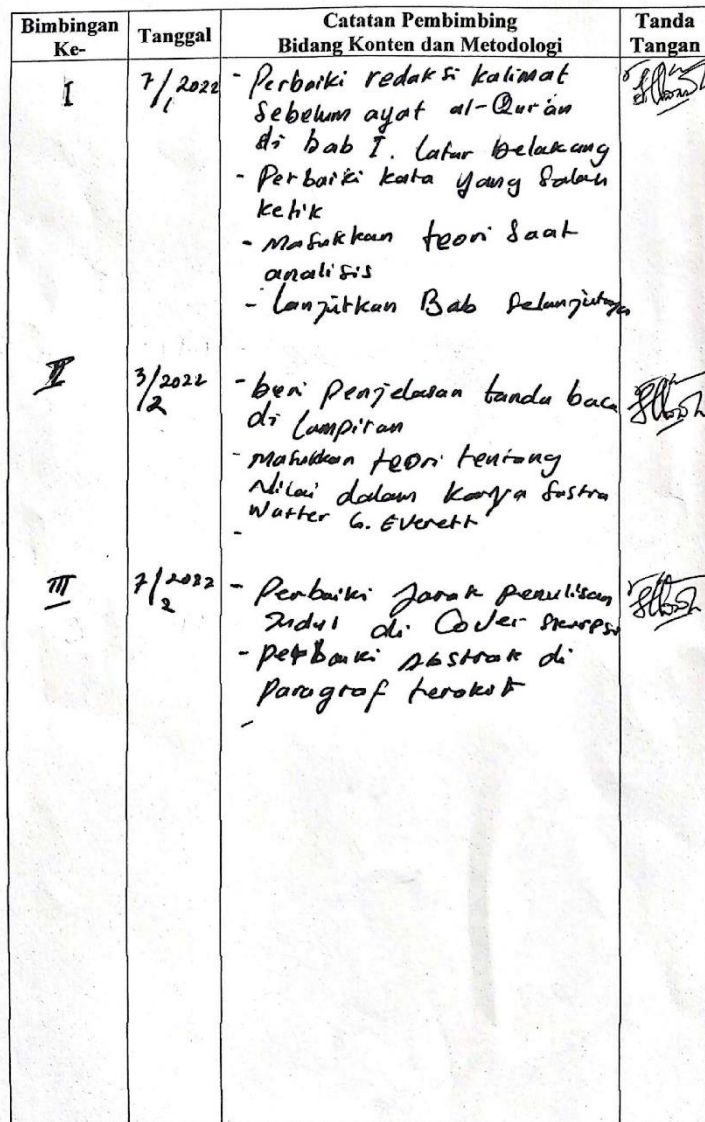 Bimbingan Ke-
Tanggal
Catatan Pembimbing
Bidang Konten dan Metodologi
Tanda Tangan
I
7/1 2022
- Perbaiki redaksi kalimat
sebelum ayat al-Qur'an
di bab I. latar belakang
- Perbaiki kata yang salah
ketik
- Masukkan teori saat
analisis
- Lanjutkan Bab selanjutnya
II
3/2 2022
- beri penjelasan tanda baca
di lampiran
- Masukkan teori tentang
Nilai dalam karya sastra
Watter G. Everett
-
III
7/2 2022
- Perbaiki Jarak penulisan
Judul di Cover skripsi
- perbaiki Abstrak di
Paragraf